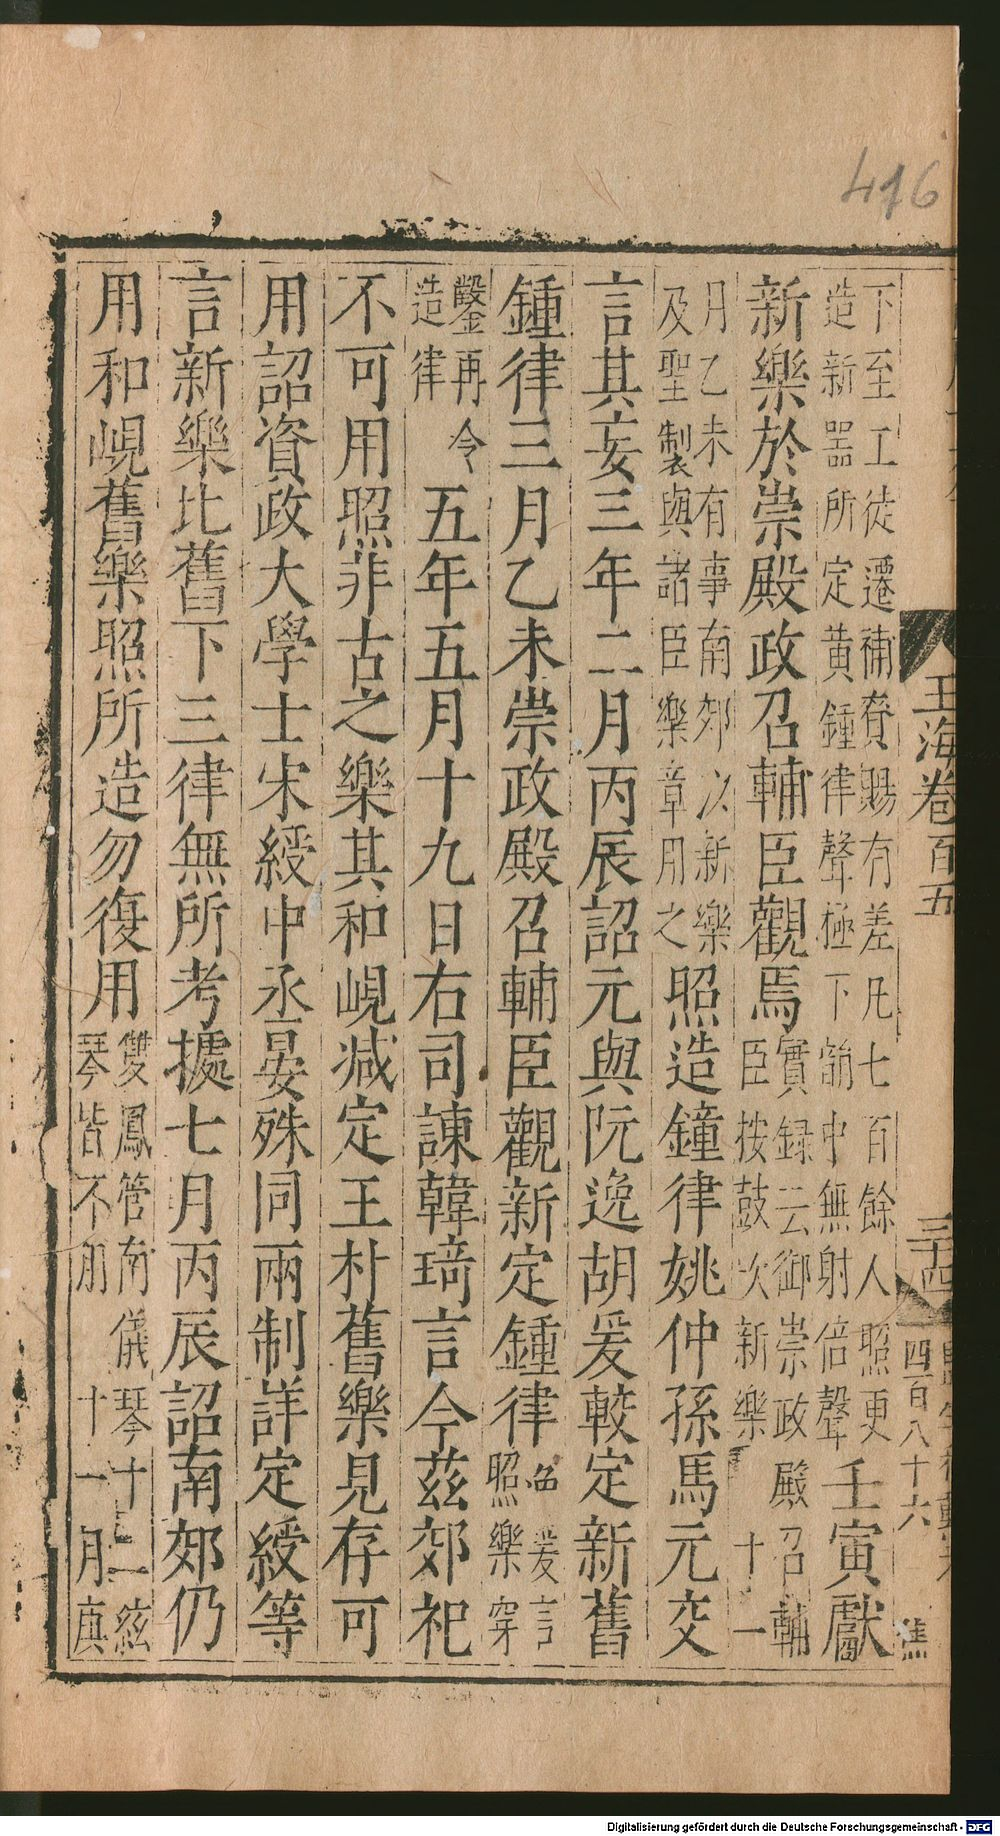 416
玉海卷百五
三十四
四百八十六
下至工徒遷補賚賜有差凡七百餘人照更
造新器所定黃鍾律聲極下謂中無射倍聲
壬寅獻
新樂於崇殿政召輔臣觀焉
實録云御崇政殿召輔
臣按鼓吹新樂
十一
月乙未有事南郊以新樂
及聖製與諸臣樂章用之
照造鐘律姚仲孫馬元交
言其妄三年二月丙辰詔元與阮逸胡爰較定新舊
鍾律三月乙未崇政殿召輔臣觀新定鍾律
爰言
照樂穿
鑿再令
造律
五年五月十九日右司諫韓琦言今茲郊祀
不可用照非古之樂其和峴減定王朴舊樂見存可
用詔資政大學士宋綬中丞晏殊同兩制詳定綬等
言新樂比舊下三律無所考據七月丙辰詔南郊仍
用和峴舊樂照所造勿復用
雙鳳管南儀琴十二絃
琴皆不用
十一月
Digitalisierung gefördert durch die Deutsche Forschungsgemeinschaft - DFG